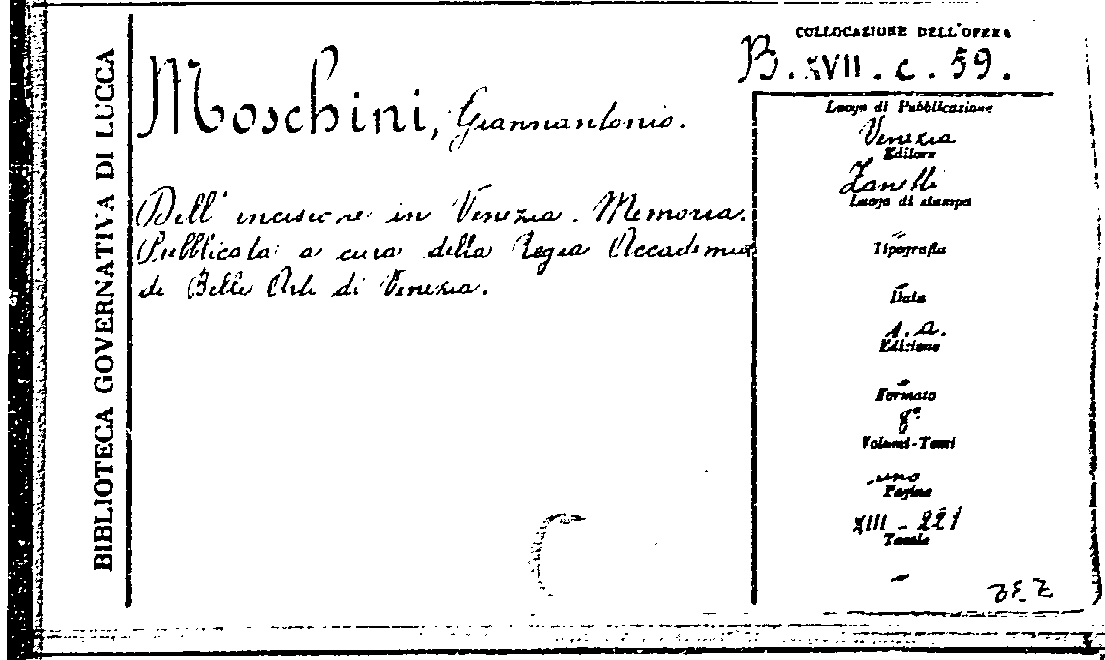 BIBLIOTECA GOVERNATIVA DI LUCCA
Moschini, Giannantonio.
Dell' incisione in Venezia. Memoria.
Pubblicata a cura della Regia Accademia
di Belle Arti di Venezia.
COLLOCAZIONE DELL'OPERA
B. XVII. c. 59.
Luogo di Pubblicazione
Venezia
Editore
Zanetti
Luogo di stampa
–
Tipografia
–
Data
s. a.
Edizione
–
Formato
8°
Volumi-Tomi
uno
Pagine
XIII - 221
Tavole
–